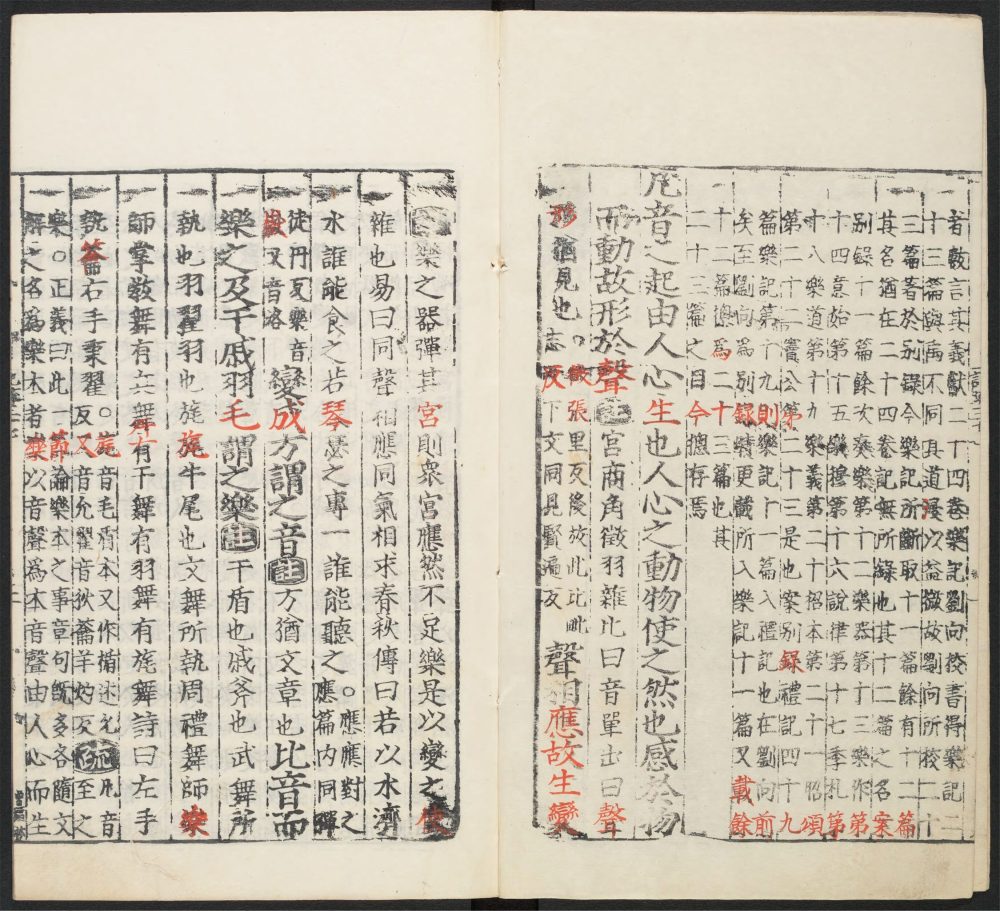 者數言其義獻二十四卷樂記劉向校書得樂記二
十三篇與禹不同其道浸以益微故劉向所校二十
三篇著於別錄今樂記所斷取十一篇餘有十二篇
其名猶在二十四卷記無所錄也其十二篇之名案
別錄十一篇餘次奏樂第十二樂器第十三樂作第
十四意始第十五樂穆第十六說律第十七季札第
十八樂道第十九樂義第二十招本第二十一昭頌
第二十二竇公第二十三是也案別錄禮記四十九
篇樂記第十九則樂記十一篇入禮記也在劉向前
矣至劉向為別錄時更載所入樂記十一篇又載餘
十二篇總為二十三篇也其
二十三篇之目今總存焉
凡音之起由人心生也人心之動物使之然也感於物
而動故形於聲註宮商角徵羽雜比曰音單出曰聲
形猶見也。徵張里反後放此比毗
志反下文同見賢遍反
聲相應故生變
註樂之器彈其宮則眾宮應然不足樂是以變之使
雜也易曰同聲相應同氣相求春秋傳曰若以水濟
水誰能食之若琴瑟之專一誰能聽之。應應對之
應篇內同彈
徒丹反樂音
嶽又音洛
變成方謂之音註方猶文章也比音而
樂之及干戚羽毛謂之樂註干盾也戚斧也武舞所
執也羽翟羽也旄牛尾也文舞所執周禮舞師樂
師掌教舞有兵舞有干舞有羽舞有旄舞詩曰左手
執籥右手秉翟。旄音毛盾本又作楯述允
反又音允翟音狄籥羊灼反
疏凡音至之
樂。正義曰此一節論樂本之事章句既多各隨文
解之名為樂本者樂以音聲為本音聲由人心而生